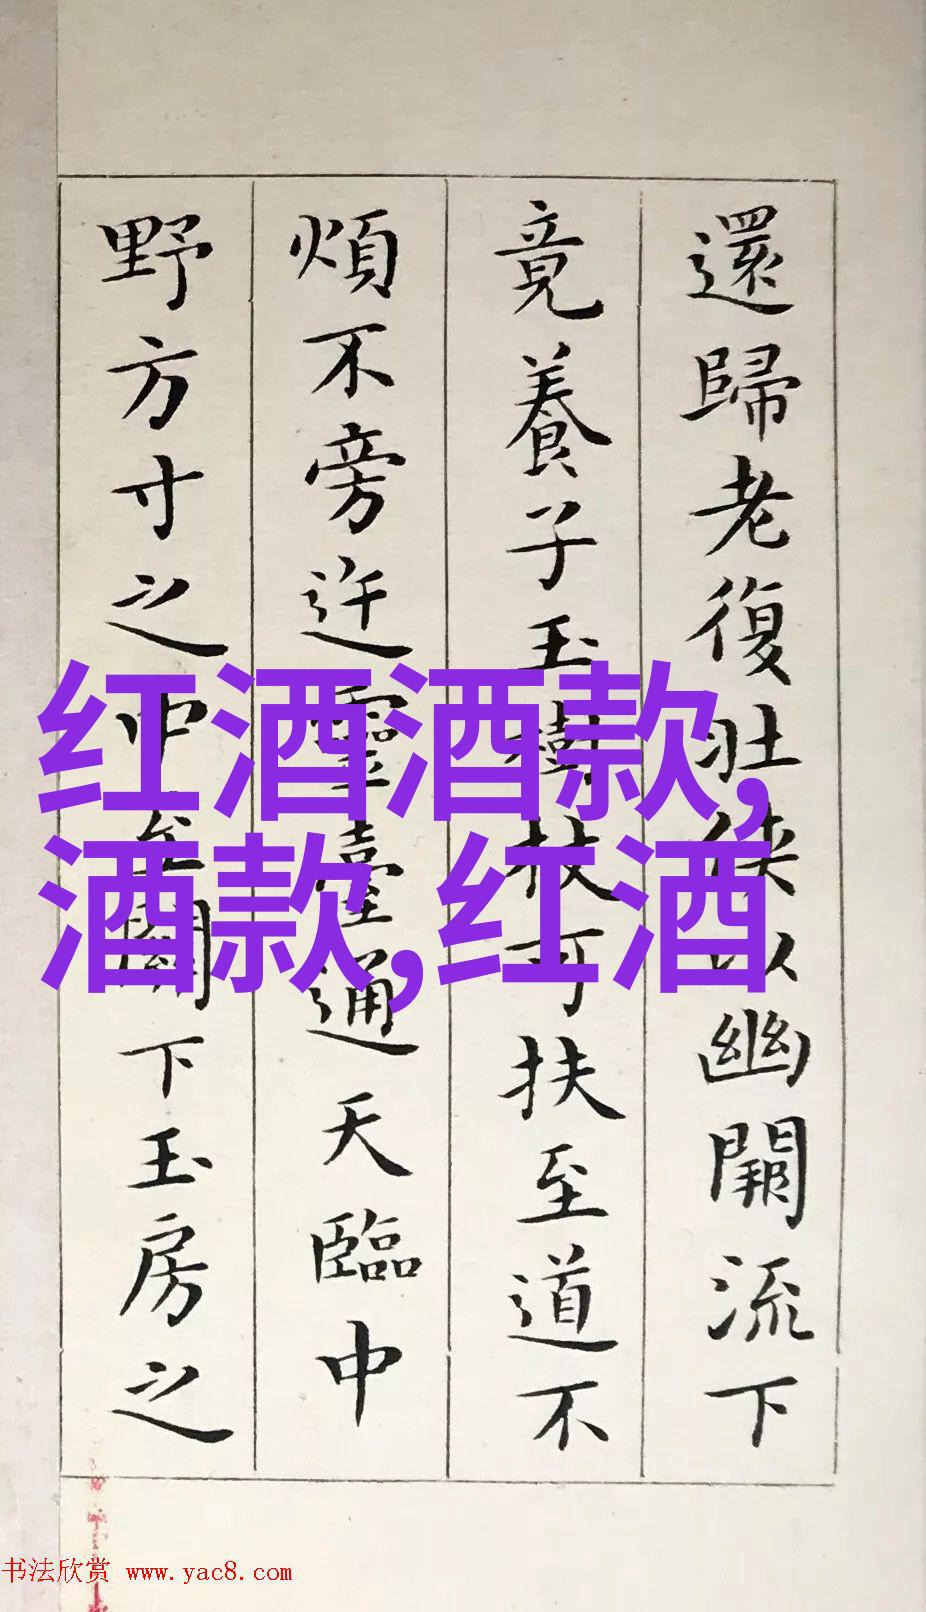 還歸老復壯俠以幽闕流下
竟養子玉樹杖可扶至道不
煩不旁迕靈臺通天臨中
野方寸之中至闕下玉房之
红酒酒款,
酒款,红酒
书法欣赏 www.yac8.com